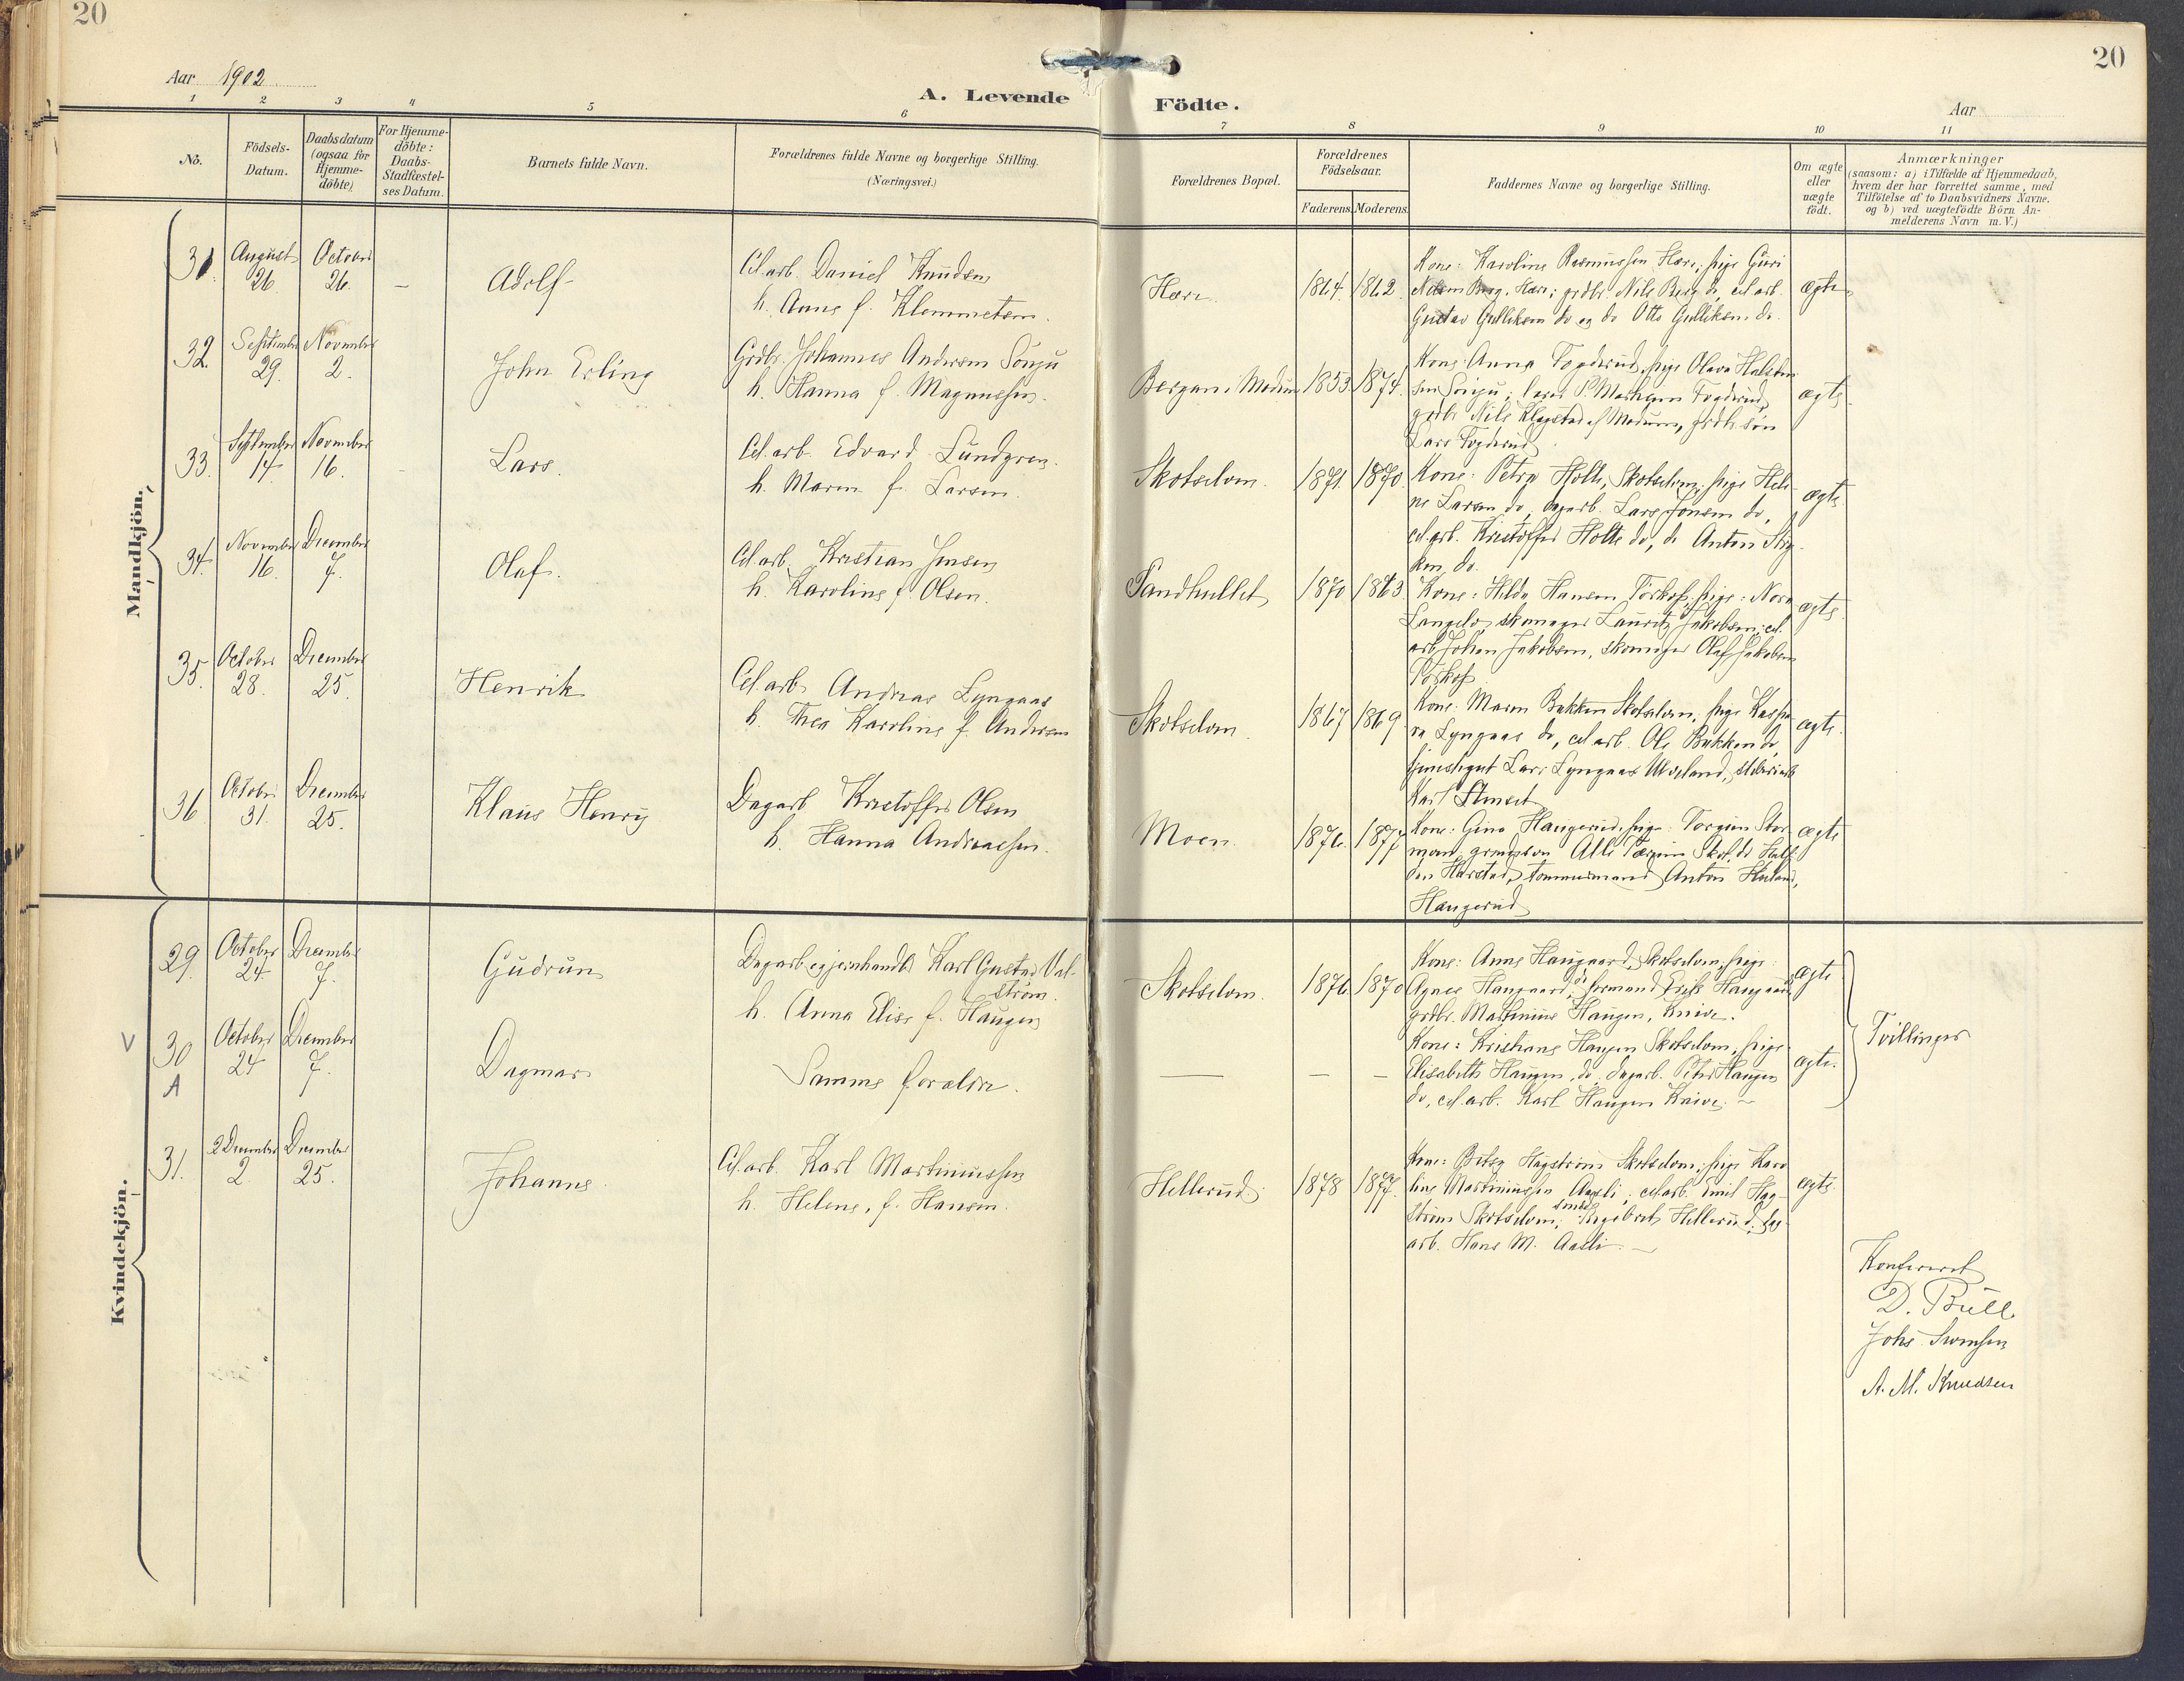 20
20
Aar 1902
A. Levende Födte.
Aar
1 2 3 4 5 6 7 8 9 10 11
No.
Födsels-
Datum.
Daabsdatum
(ogsaa for
Hjemme-
döbte)
For Hjemme-
döbte:
Daabs-
Stadfæstel-
ses Datum.
Barnets fulde Navn.
Forældrenes fulde Navne og borgerlige Stilling.
(Næringsvei.)
Forældrenes Bopæl.
Forældrenes
Födselsaar.
Faderens. Moderens.
Faddernes Navne og borgerlige Stilling.
Om ægte
eller
uægte
födt.
Anmærkninger
(saasom: a) i Tilfælde af Hjemmedaab,
hvem der har forrettet samme, med
Tilföielse af to Daabsvidners Navne.
og b) ved uægtefödte Börn An-
melderens Navn m.V.)
Mandkjön.
31. August 26. October 26. — Adolf
Cel.arb. Daniel Knudsen
h. Anne f. Klemmetsen.
Hære. 1864. 1862.
Kone: Karoline Rasmussen Hære; pige Guri
Nilsen Berg, Hære; grdbr. Nils Berg do, cel.arb.
Gustav Gulliksen do og do Otto Gulliksen do.
ægte
32. September 29. November 2. John Erling
Grdbr. Johannes Andersen Sönju
h. Hanna f. Magnussen.
Bergan i Modum 1853. 1874.
Kone: Anna Fogderud, pige Olava Halsten
sen Sönju;
grdbr Nils Klopstad af Modum, grdbr.sön
Lars Fogderud
ægte
33. September 14. November 16. Lars.
Cel.arb. Edvard Lundgren.
h. Maren f. Larsen.
Skotselven. 1871. 1870.
Kone: Petra Holte, Skotselven; pige Hele-
ne Larsen do, dagarb. Lars Jonsen do,
cel.arb. Kristoffer Holte do, do Anton
do.
ægte
34. November 16. December 7. Olaf.
Cel.arb. Kristian Jensen
h. Karoline f. Olsen.
Sandhullet 1870 1863.
Kone: Hilda Hansen Torkop, pige: Nora
skomager Lauritz Jakobsen; cel.
arb Johan Jakobsen, skomager Olaf Jakobsen
Torkop
ægte
35. October 28. December 25. Henrik
Cel.arb. Andreas Lyngaas
h. Thea Karoline f. Andersen
Skotselven. 1867 1869
Kone: Maren Bakken Skotselven, pige Kaspa
ra Lyngaas do, cel.arb. Ole Bakken do,
tjenestegut Lars Lyngaas
Karl
ægte.
36 October 31. December 25. Klaus Henry
Dagarb Kristoffer Olsen
h. Hanna Andreassen.
Moen. 1876. 1877
Kone: Gina Haugerud, pige:
do Half-
dan Harstad, tømmermand Anton
Haugerud
ægte
Kvindekjön.
29. October 24. December 7. Gudrun
Dagarb og jernhandler Karl Gustav Val-
ström.
h. Anna Elise f. Haugen
Skotselven. 1876 1870
Kone: Anne Haugaard, Skotselven, pige:
Agnes Haugaard do, formand Erik Haugaard,
grdbr. Martinius Haugen, Knive.
ægte
V
30 A October 24 December 7. Dagmar
Samme forældre.
— — —
Kone: Kristiane Haugen Skotselven, pige
Elisabeth Haugen do, dagarb. Peter Haugen
do, cel.arb. Karl Haugen Knive. —
ægte.
Tvillinger
31. 2 December 2. December 25. Johanne
Cel.arb. Karl Martiniussen
h. Helene, f. Hansen.
Hellerud. 1878 1877.
Kone: Betsy Hagström Skotselven; pige Karo
line Martiniussen Aasli; cel.arb. Emil Hag-
ström Skotselven, Engebret Hellerud; dag
arb. Hans M. Aasli. —
ægte.
Konfereret
D. Bull
Johs Svensen
A. M. Knudsen